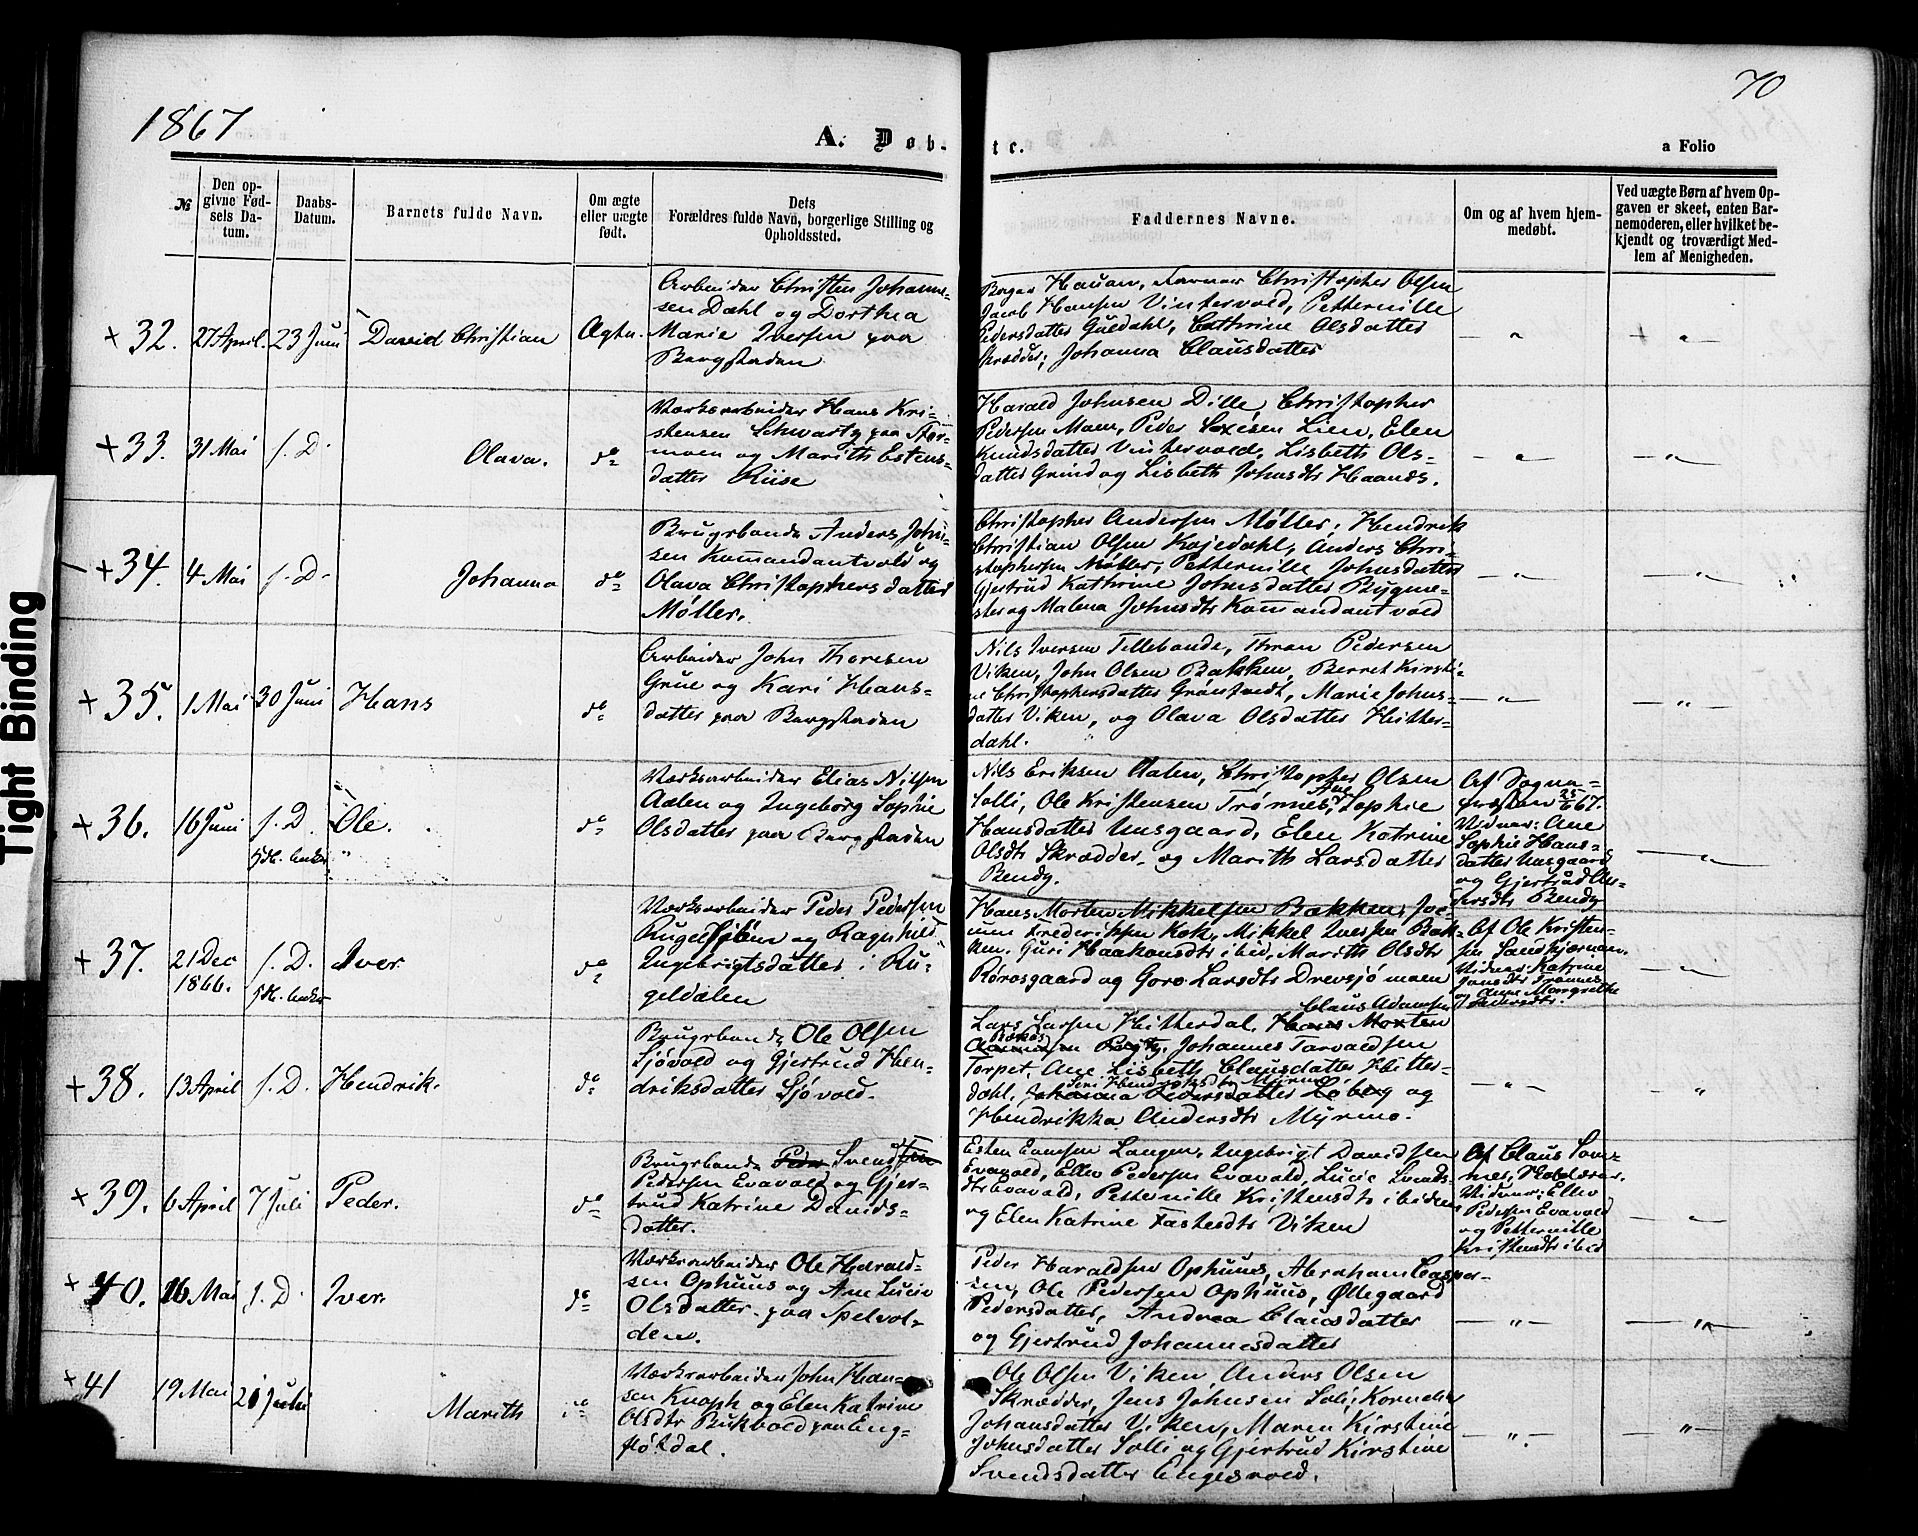 1867
70
A. Døb-
te.
a Folio
№
Den op-
givne Fød-
sels Da-
tum.
Daabs-
Datum.
Barnets fulde Navn.
Om ægte
eller uægte
født.
Dets
Forældres fulde Navn, borgerlige Stilling og
Opholdssted.
Faddernes Navne.
Om og af hvem hjem-
medøbt.
Ved uægte Børn af hvem Op-
gaven er skeet, enten Bar-
nemoderen, eller hvilket be-
kjendt og troværdigt Med-
lem af Menigheden.
+ 32. 27 April. 23 Juni David Christian Ægte.
Arbeider Christen Johanne-
sen Dæhl og Dorthea
Marie Iversen paa
Bergstaden
Hauan, Christopher Olsen
Jacob Hansen Vintervold, Petternille
Pedersdatter Guldahl, Cathrine Olsdatter
Skrædder, Johanna Clausdatter
+ 33. 31 Mai s. D. Olava. do
Værksarbeider Hans Kri-
stensen Schwartz paa Stor-
moen og Marith Estens-
datter Riise
Harald Johnsen Dille, Christopher
Pedersen Moen, Peder Lien, Elen
Knudsdatter Vintervold, Lisbeth Ols-
datter Grind og Lisbeth Johnsdtr Haands.
+ 34. 4 Mai s. D. Johanna do
Brugsbonde Anders John-
sen Komandantvold og
Olava Christophersdatter
Møller.
Christopher Andersen Møller, Hendrik
Christian Olsen Kojedahl, Anders Chri-
stophersen Møller, Petternille Johnsdatter
Gjertrud Kathrine Johnsdatter Bygme-
ster og Malena Johnsdtr Komandantvold
+ 35. 1 Mai 30 Juni Hans do
Arbeider John Thoresen
Grue og Kari Hans-
datter paa Bergstaden
Nils Iversen Tillebonde, Thron Pedersen
Viken, John Olsen Bakken, Berret Kirsti-
ne Christophersdatter Grøntvedt, Marie Johns-
datter Viken, og Olava Olsdatter Hitter-
dahl.
+ 36. 16 Juni s. D. Ole. do
Værksarbeider Elias Nilsen
Aalen og Ingeborg Sophie
Olsdatter paa Bergstaden
Nils Eriksen Aalen, Christopher Olsen
Solli, Ole Kristensen Trønnes, Ane Sophie
Hansdatter Uusgaard, Elen Katrine
Olsdtr Skrædder, og Marith Larsdatter
Bendz.
Af Sogne-
præsten 25/6 67.
Vidner: Ane
Sophie Hans-
datter Uusgaard
og Gjertrud
Bendz
+ 37. 21 Dec 1866. s. D. Iver. do
Værksarbeider Peder Pedersen
Rugelsjøen og Ragnhild
Ingebrigtsdatter i Ru-
geldalen
Hans Morten Mikkelsen Bækken, Joc-
um Frederiksen Kok, Mikkel Iversen Bæk-
ken, Guri Haakonsdtr ibid, Marith Olsdtr
Rørosgaard og Goro Larsdtr Drevsjømoen
Af Ole Kristen-
sen Sandkjærnan.
Vidner: Katrine
Jonsdtr Trønnes
og Anne Margrethe
Pedersdtr.
+ 38. 13 April s. D. Hendrik. do
Brugsbonde Ole Olsen
Sjøvold og Gjertrud Hen-
driksdatter Sjøvold.
Claus Adamsen
Lars Larsen Hitterdal, Hans Morten
Johannes Tarvaldsen
Torpet, Ane Lisbeth Clausdatter Hitter-
dahl, Johanna Pedersdatter og
Hendrikka Andersdtr Myrmo.
+ 39. 6 April 7 Juli Peder. do
Brugsbonde Peder Svend
Pedersen Evavold og Gjer-
trud Katrine Davids-
datter.
Esten Evensen Langen, Ingebrigt Davidsen
Evavold, Ellev Pedersen Evavold, Lucie Svends-
dtr Evavold, Petternille Kristensdtr ibidem
og Elen Katrine Viken
Af Claus
Vidner: Ellev
Pedersen Evavold
og Petternille
Kristensdtr ibid
+ 40. 16 Mai s. D. Iver. do
Værksarbeider Ole Harald-
sen Ophuus og Ane Lucie
Olsdatter paa Spelvol-
den.
Peder Haraldsen Ophuus, Abraham Casper-
sen, Ole Pedersen Ophuus, Øllegaard
Pedersdatter, Andrea Clausdatter
og Gjertrud Johannesdatter
+ 41 19 Mai 21 Juli Marith do
Værksarbeider John Han-
sen Knoph og Elen Katrine
Olsdtr Bukvold paa Eng-
fløtdal.
Ole Olsen Viken, Anders Olsen
Skrædder, Jens Johnsen Soli, Kornelia
Johansdatter Viken, Maren Kirstine
Johnsdatter Solli og Gjertrud Kirstine
Svendsdatter Engesvold.
Tight Binding